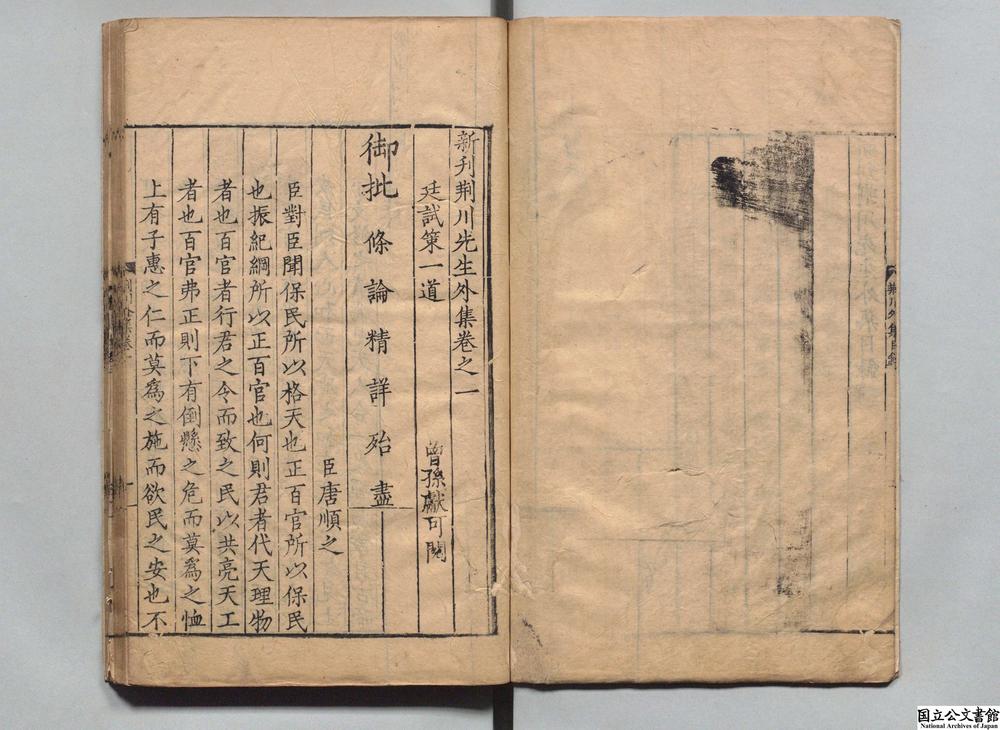 新刋荆川先生外集卷之一
廷試策一道
曾孫獻可閱
御批 條論精詳殆盡
臣唐順之
臣對臣聞保民所以格天也正百官所以保民
也振紀綱所以正百官也何則君者代天理物
者也百官者行君之令而致之民以共亮天工
者也百官弗正則下有倒懸之危而莫爲之恤
上有子惠之仁而莫爲之施而欲民之安也不
荆川外集目録
国立公文書館
National Archives of Japan